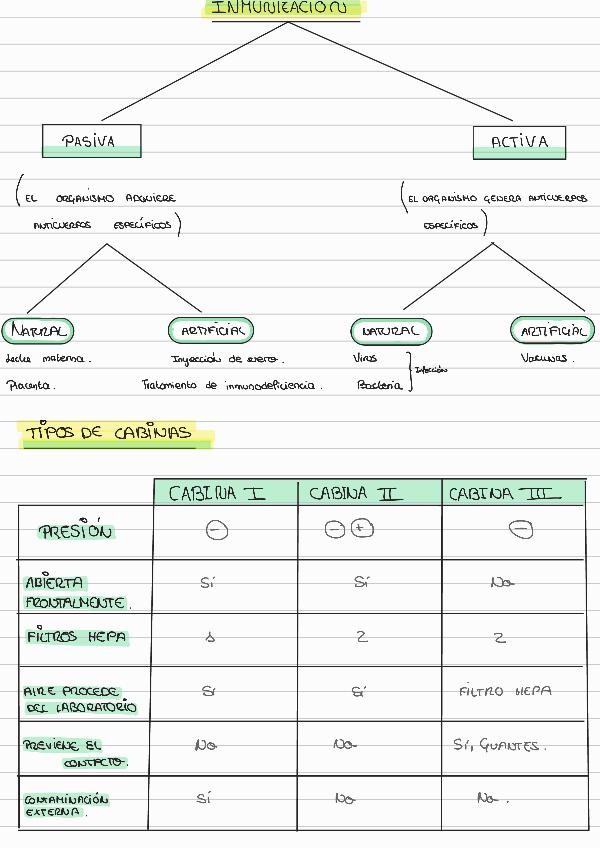 INMUNIZACIÓN
PASIVA
ACTIVA
(EL ORGANISMO ADQUIERE
ANTICUERPOS ESPECÍFICOS)
(EL ORGANISMO GENERA ANTICUERPOS
ESPECÍFICOS)
NATURAL
ARTIFICIAL
NATURAL
ARTIFICIAL
Leche materna.
Inyección de suero.
Virus
Vacunas.
Placenta.
Tratamiento de inmunodeficiencia.
Bacteria
Infección
TIPOS DE CABINAS
CABINA I
CABINA II
CABINA III
PRESIÓN
-
- +
-
ABIERTA
FRONTALMENTE.
Sí
Sí
No
FILTROS HEPA
1
2
2
AIRE PROCEDE
DEL LABORATORIO
Sí
Sí
FILTRO HEPA
PREVIENE EL
CONTACTO.
No
No
Sí, GUANTES.
CONTAMINACIÓN
EXTERNA.
Sí
No
No.